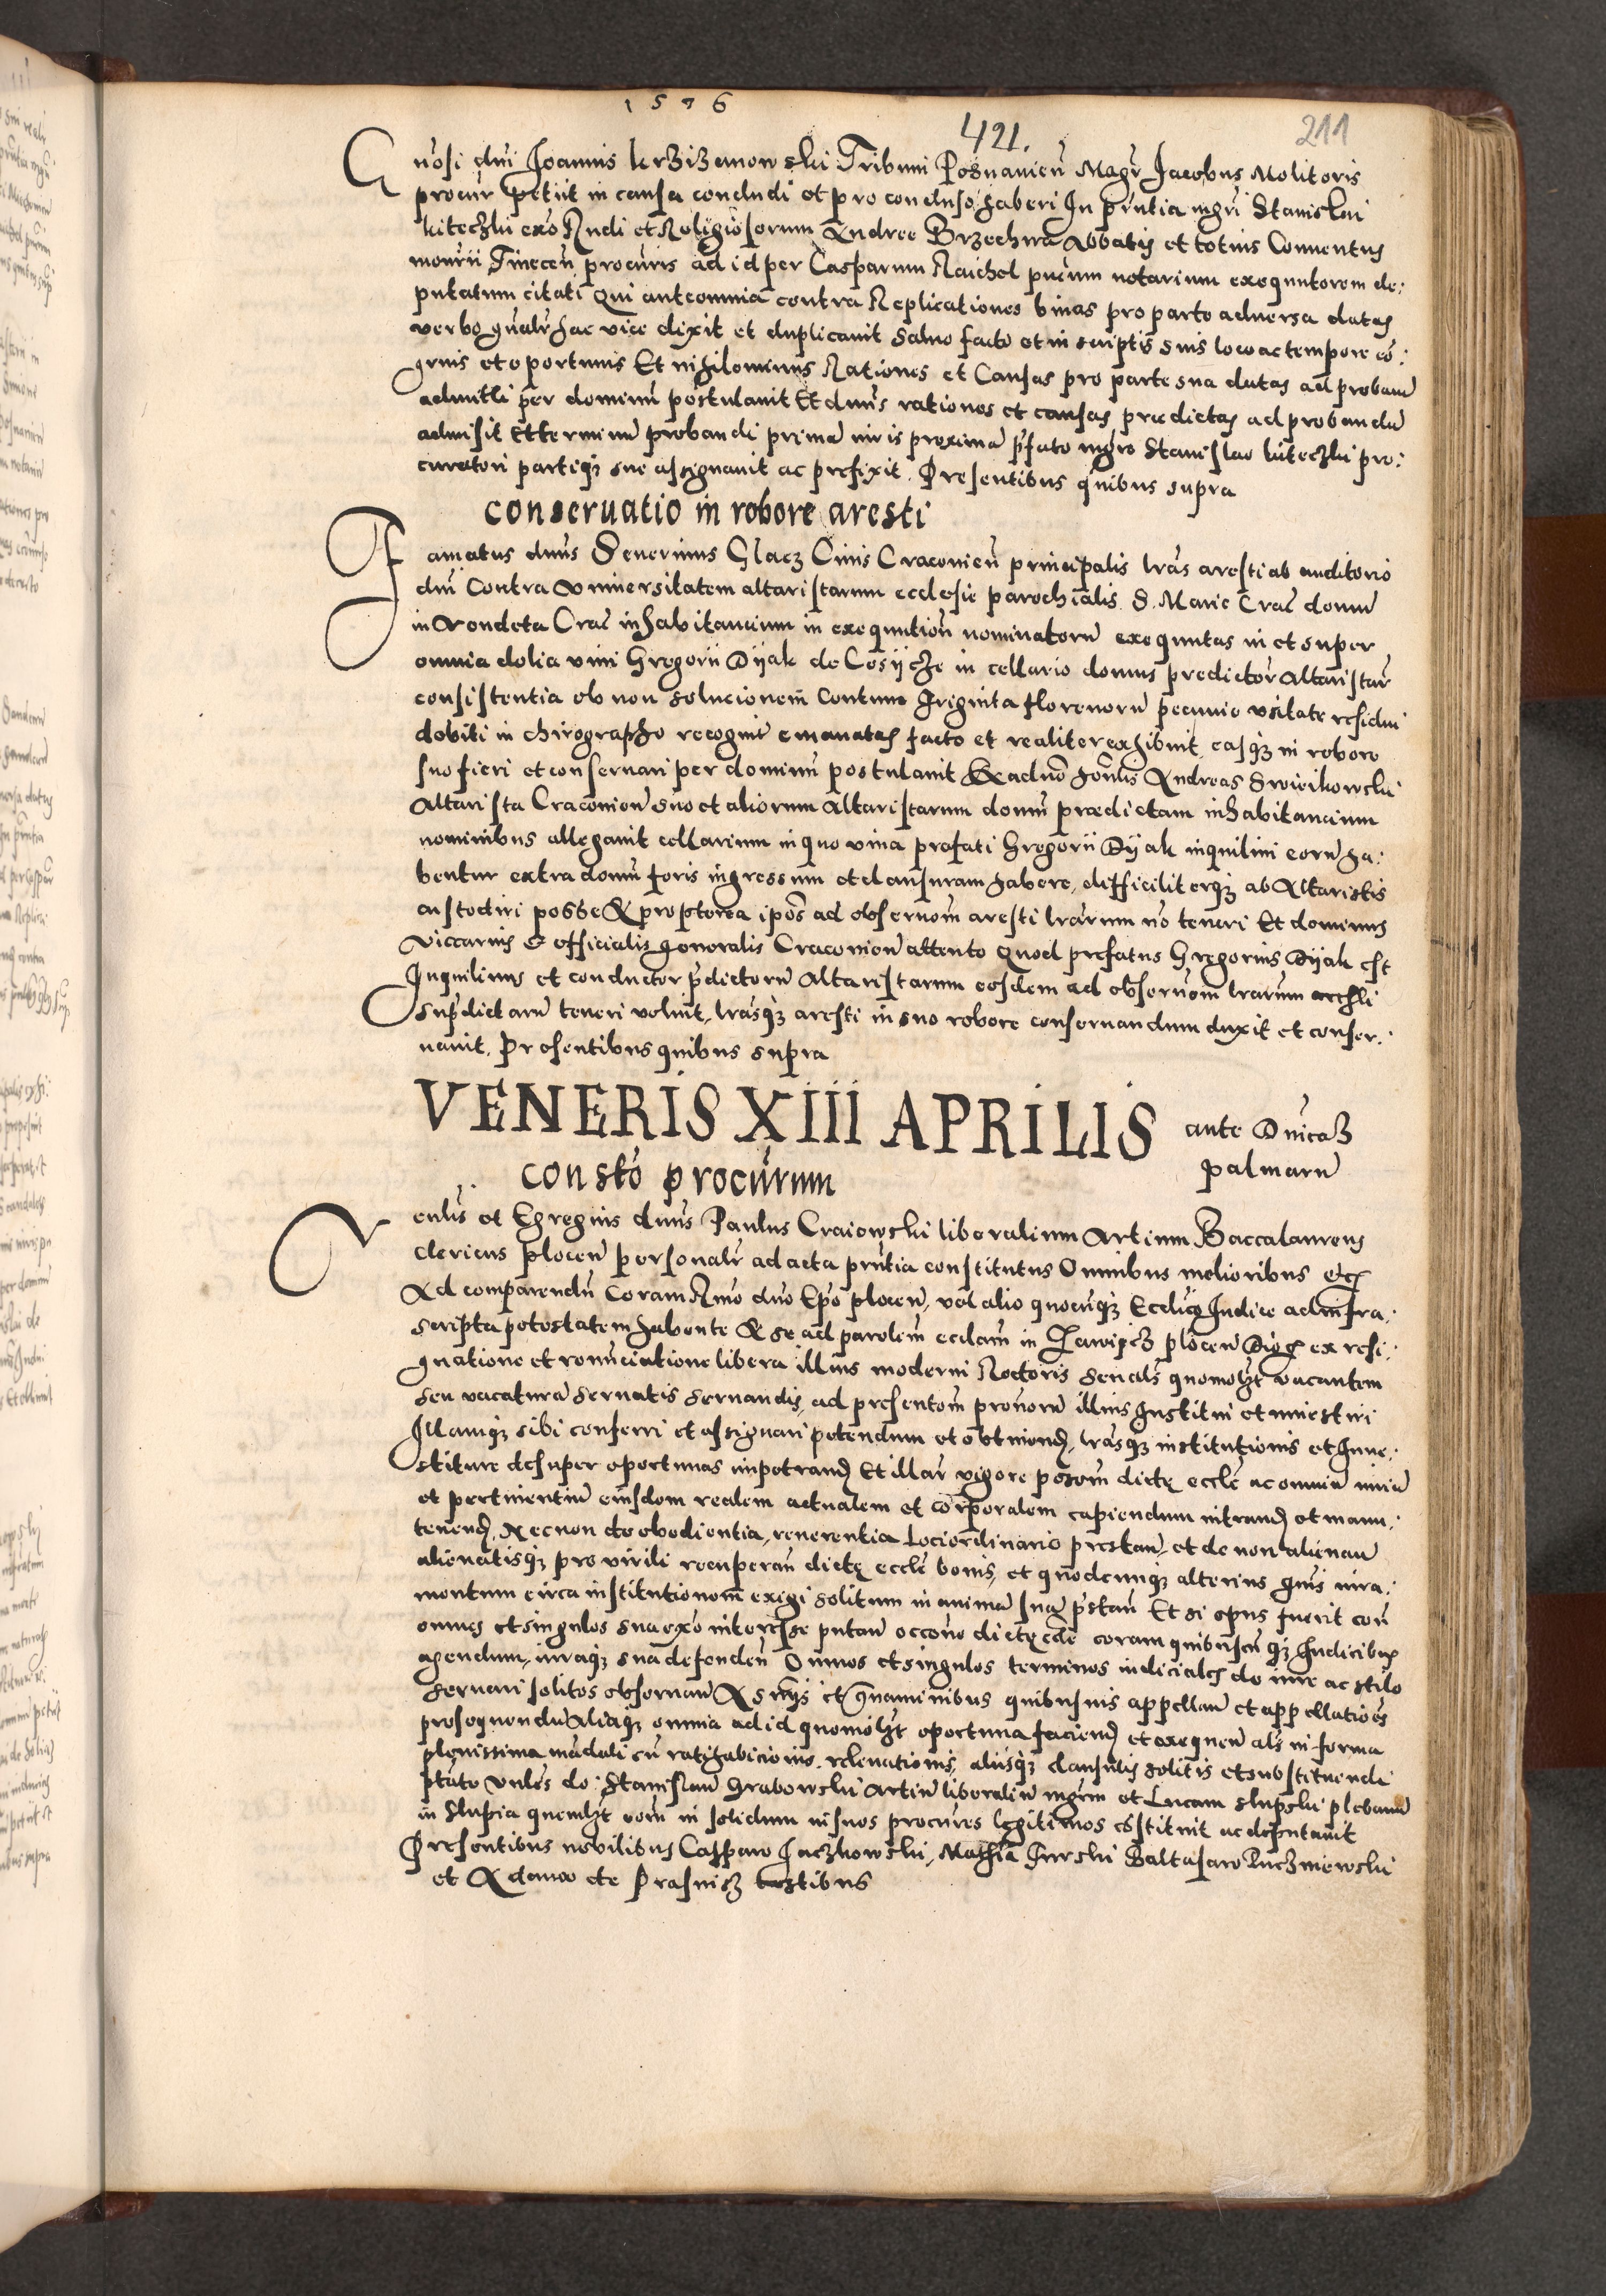 1576
421.
211
Gnosi dni Joannis krzizanowski Tribuni Posnanien Magr Jacobus Molitoris
procur petiit in causa concludi et pro concluso haberi In pntia mgri Stanislai
kiteczki exo Rndi et Religiosorum Andree Brzechwa Abbatis et totius Conuentus
mourii Tinecen procuris ad id per Casparum Raichel pucum notarium exequutorem de:
putatum citati Qui anteomnia contra Replicationes binas pro parte aduersa datas
verbo gnalr hac vice dixit et duplicauit Saluo facto et in scriptis suis loco ac tempore co:
gruis et oportunis Et nihilominus Rationes et Causas pro parte sua datas ad proband
admitti per dominu postulauit Et dnus rationes et causas prædictas ad probandu
admisit Et terminu probandi prima iuris proxima pfato mgro Stanislao kiteczki pro:
curatori partiqz sue assignauit ac prefixit. Presentibus quibus supra
conseruatio in robore aresti
Famatus dnus Seuerinus Glacz Ciuis Cracouien principalis lras aresti ab auditorio
dni Contra vniuersitatem altaristarum ecclesie parochialis S. Marie Crac domu
in vondeta Crac inhabitancium in exequution nominatoru exequutas in et super
omnia dolia vini Gregorii Dijak de Cosijcze in cellario domus predictor Altaristar
consistentia ob non solucionem Centum Triginta florenoru pecunie vsitate residui
debiti in chirographo recognit emanatas facto et realiter exhibuit easqz in robore
suo fieri et conseruari per dominu postulauit Ex aduo honlis Andreas Swieikowski
Altarista Cracouien suo et aliorum Altaristarum domu prædictam inhabitancium
nominibus allegauit cellarium in quo vina prefati Gregorii Dijak inquilini eoru ha:
bentur extra domu foris ingressum et clausuram habere, difficiliterqz ab Altaristis
custodiri posse & propterea ipos ad obseruom aresti lrarum no teneri Et dominus
viccarius & officialis generalis Cracouien attento quod prefatus Gregorius Dijak est
Inquilinus et conductor pdictoru Altaristarum eosdem ad obseruom lrarum aresti
supdictaru teneri voluit, lrasqz aresti in suo robore conseruandum duxit et conser:
uauit. Presentibus quibus supra
VENERIS XIII APRILIS ante Dnicaz
palmaru
consto procurum
Venlis et Egregius dnus Paulus Craiewski liberalium Artium Baccalaureus
Clericus plocen personalr ad acta pntia constitutus Omnibus melioribus etc
Ad comparendu coram Rmo dno Epo plocen, vel alio quocuqz Ecclico Iudice ad infra:
scripta potestatem habente & se ad parolem ecclam in plocen Dioc ex resi:
gnatione et renunciatione libera illius moderni Rectoris seu als quomolzt vacantem
seu vacatura seruatis seruandis, ad presentom pronoru illius Institui et inuestiri
Illamqz sibi conferri et assignari petendum et obtinend, lrasqz institutionis et Inue:
stiture desuper oportunas impetrand Et illar vigore posom dictę eccle ac omniu iuriu
et pertinentiu eiusdem realem actualem et corporalem capiendum intrand et manu:
tenend, Necnon de obedientia, reuerentia Lociordinario prestan, et de non alienan
alienatisqz pro virili recuperan dictę eccle bonis, et quodcunqz alterius guis iura:
mentum circa institutionem exigi solitum in anima sua pstan Et si opus fuerit con
omnes et singulos sua exo interesse putan occone dictę ecle coram quibuscuqz Iudicibus
agendum, iuraqz sua defenden Omnes et singulos terminos iudiciales de iure ac stilo
seruari solitos obseruan A snijs et grauaminibus quibusuis appellan et appellatioes
prosequendu Aliaqz omnia ad id quomolzt oportuna faciend et exequen als in forma
plenissima madati cu ratihabicionis, releuationis, aliisqz clausulis solitis et substituendi
ptate vnlis do: Stanislau Grabowski artiu liberaliu mgrm et Lucam Slupski plebanu
in Slupia quemlzt eorum in solidum in suos procures legitimos cōstituit ac deputauit
Presentibus nobilibus Casparo Jaczkowski, Mathia Jurski Baltasaro Ruczniewski
et Adamo de Prasnisz testibus